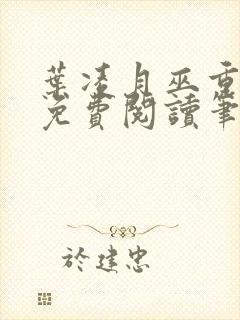 葉凌月巫重
免費閱讀筆
於建忠